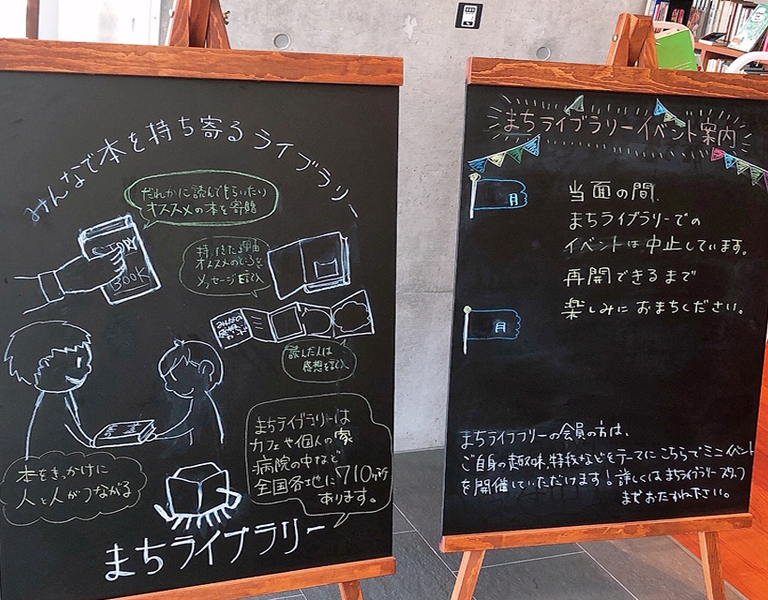 みんなで本を持ち寄るライブラリー
だれかに読んでもらいたい
オススメの本を寄贈
BOOK
持ってきた理由
オススメのところを
メッセージを記入
みんなの
感想カード
読んだ人は
感想を記入
本をきっかけに
人と人がつながる
まちライブラリーは
カフェや個人の家
病院の中など
全国各地に710ヶ所
あります。
まちライブラリー
まちライブラリーイベント案内
月
当面の間、
まちライブラリーでの
イベントは中止しています。
再開できるまで
楽しみにおまちください。
月
まちライブラリーの会員の方は、
ご自身の趣味、特技などをテーマにこちらでミニイベント
を開催していただけます!詳しくはまちライブラリースタッフ
までおたずね下さい。